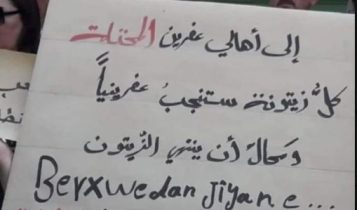 إلى أهالي عفرين المحتلة
كلُّ زيتونة ستنجبُ عفرينياً
ومحالٌ أن ينتهي الزّيتون
Berxwedan Jiyane...